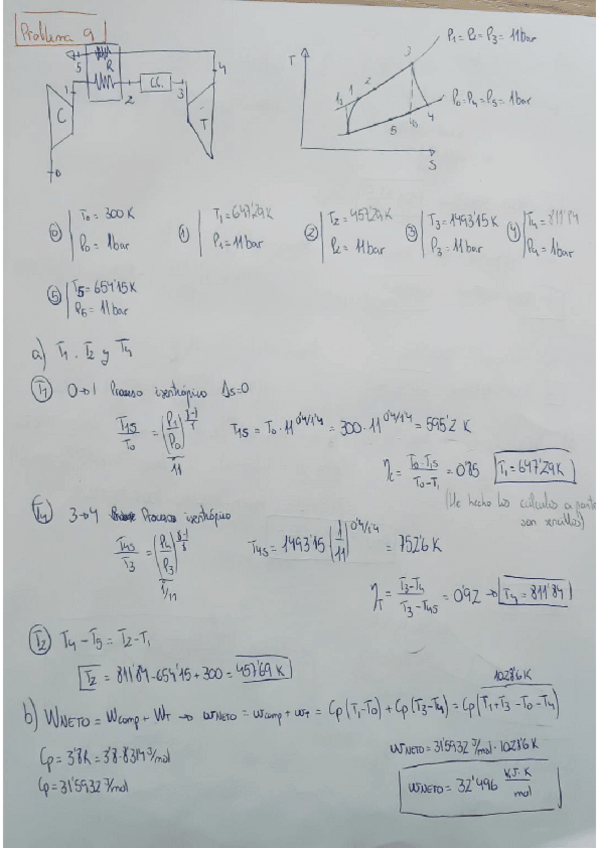 Problema 9
P₁ = P₂ = P₃ = 11 bar
T
3
2
1
P₀ = P₄ = P₅ = 1 bar
5
4s
4
S
5
R
4
1
2
CC.
3
C
T
0
⓪ T₀ = 300 K
P₀ = 1 bar
① T₁ = 647'29 K
P₁ = 11 bar
② T₂ = 457'29 K
P₂ = 11 bar
③ T₃ = 1493'15 K
P₃ = 11 bar
④ T₄ = 811'84
P₄ = 1 bar
⑤ T₅ = 654'15 K
P₅ = 11 bar
a) T₁, T₂ y T₄
T₁ 0→1 Proceso isentrópico Δs=0
T1s/T₀ = (P₁/P₀)^(γ-1/γ) T1s = T₀ · 11^0'4/1'4 = 300 · 11^0'4/1'4 = 595'2 K
11
ηc = T₀-T1s / T₀-T₁ = 0'85 T₁ = 647'29 K
(He hecho los cálculos a parte
son sencillos)
T₄ 3→4 Proceso isentrópico
T4s/T₃ = (P₄/P₃)^(γ-1/γ) T4s = 1493'15 (1/11)^0'4/1'4 = 752'6 K
1/11
ηT = T₃-T₄ / T₃-T4s = 0'92 → T₄ = 811'84
T₂ T₄ - T₅ = T₂ - T₁
T₂ = 811'84 - 654'15 + 300 = 457'69 K
1028'6 K
b) WNETO = Wcomp + WT → wNETO = wcomp + wT = Cp(T₁-T₀) + Cp(T₃-T₄) = Cp(T₁+T₃-T₀-T₄)
Cp = 3'8R = 3'8·8'314 J/mol
wNETO = 31'5932 J/mol · 1028'6 K
Cp = 31'5932 J/mol
wNETO = 32'496 KJ·K/mol